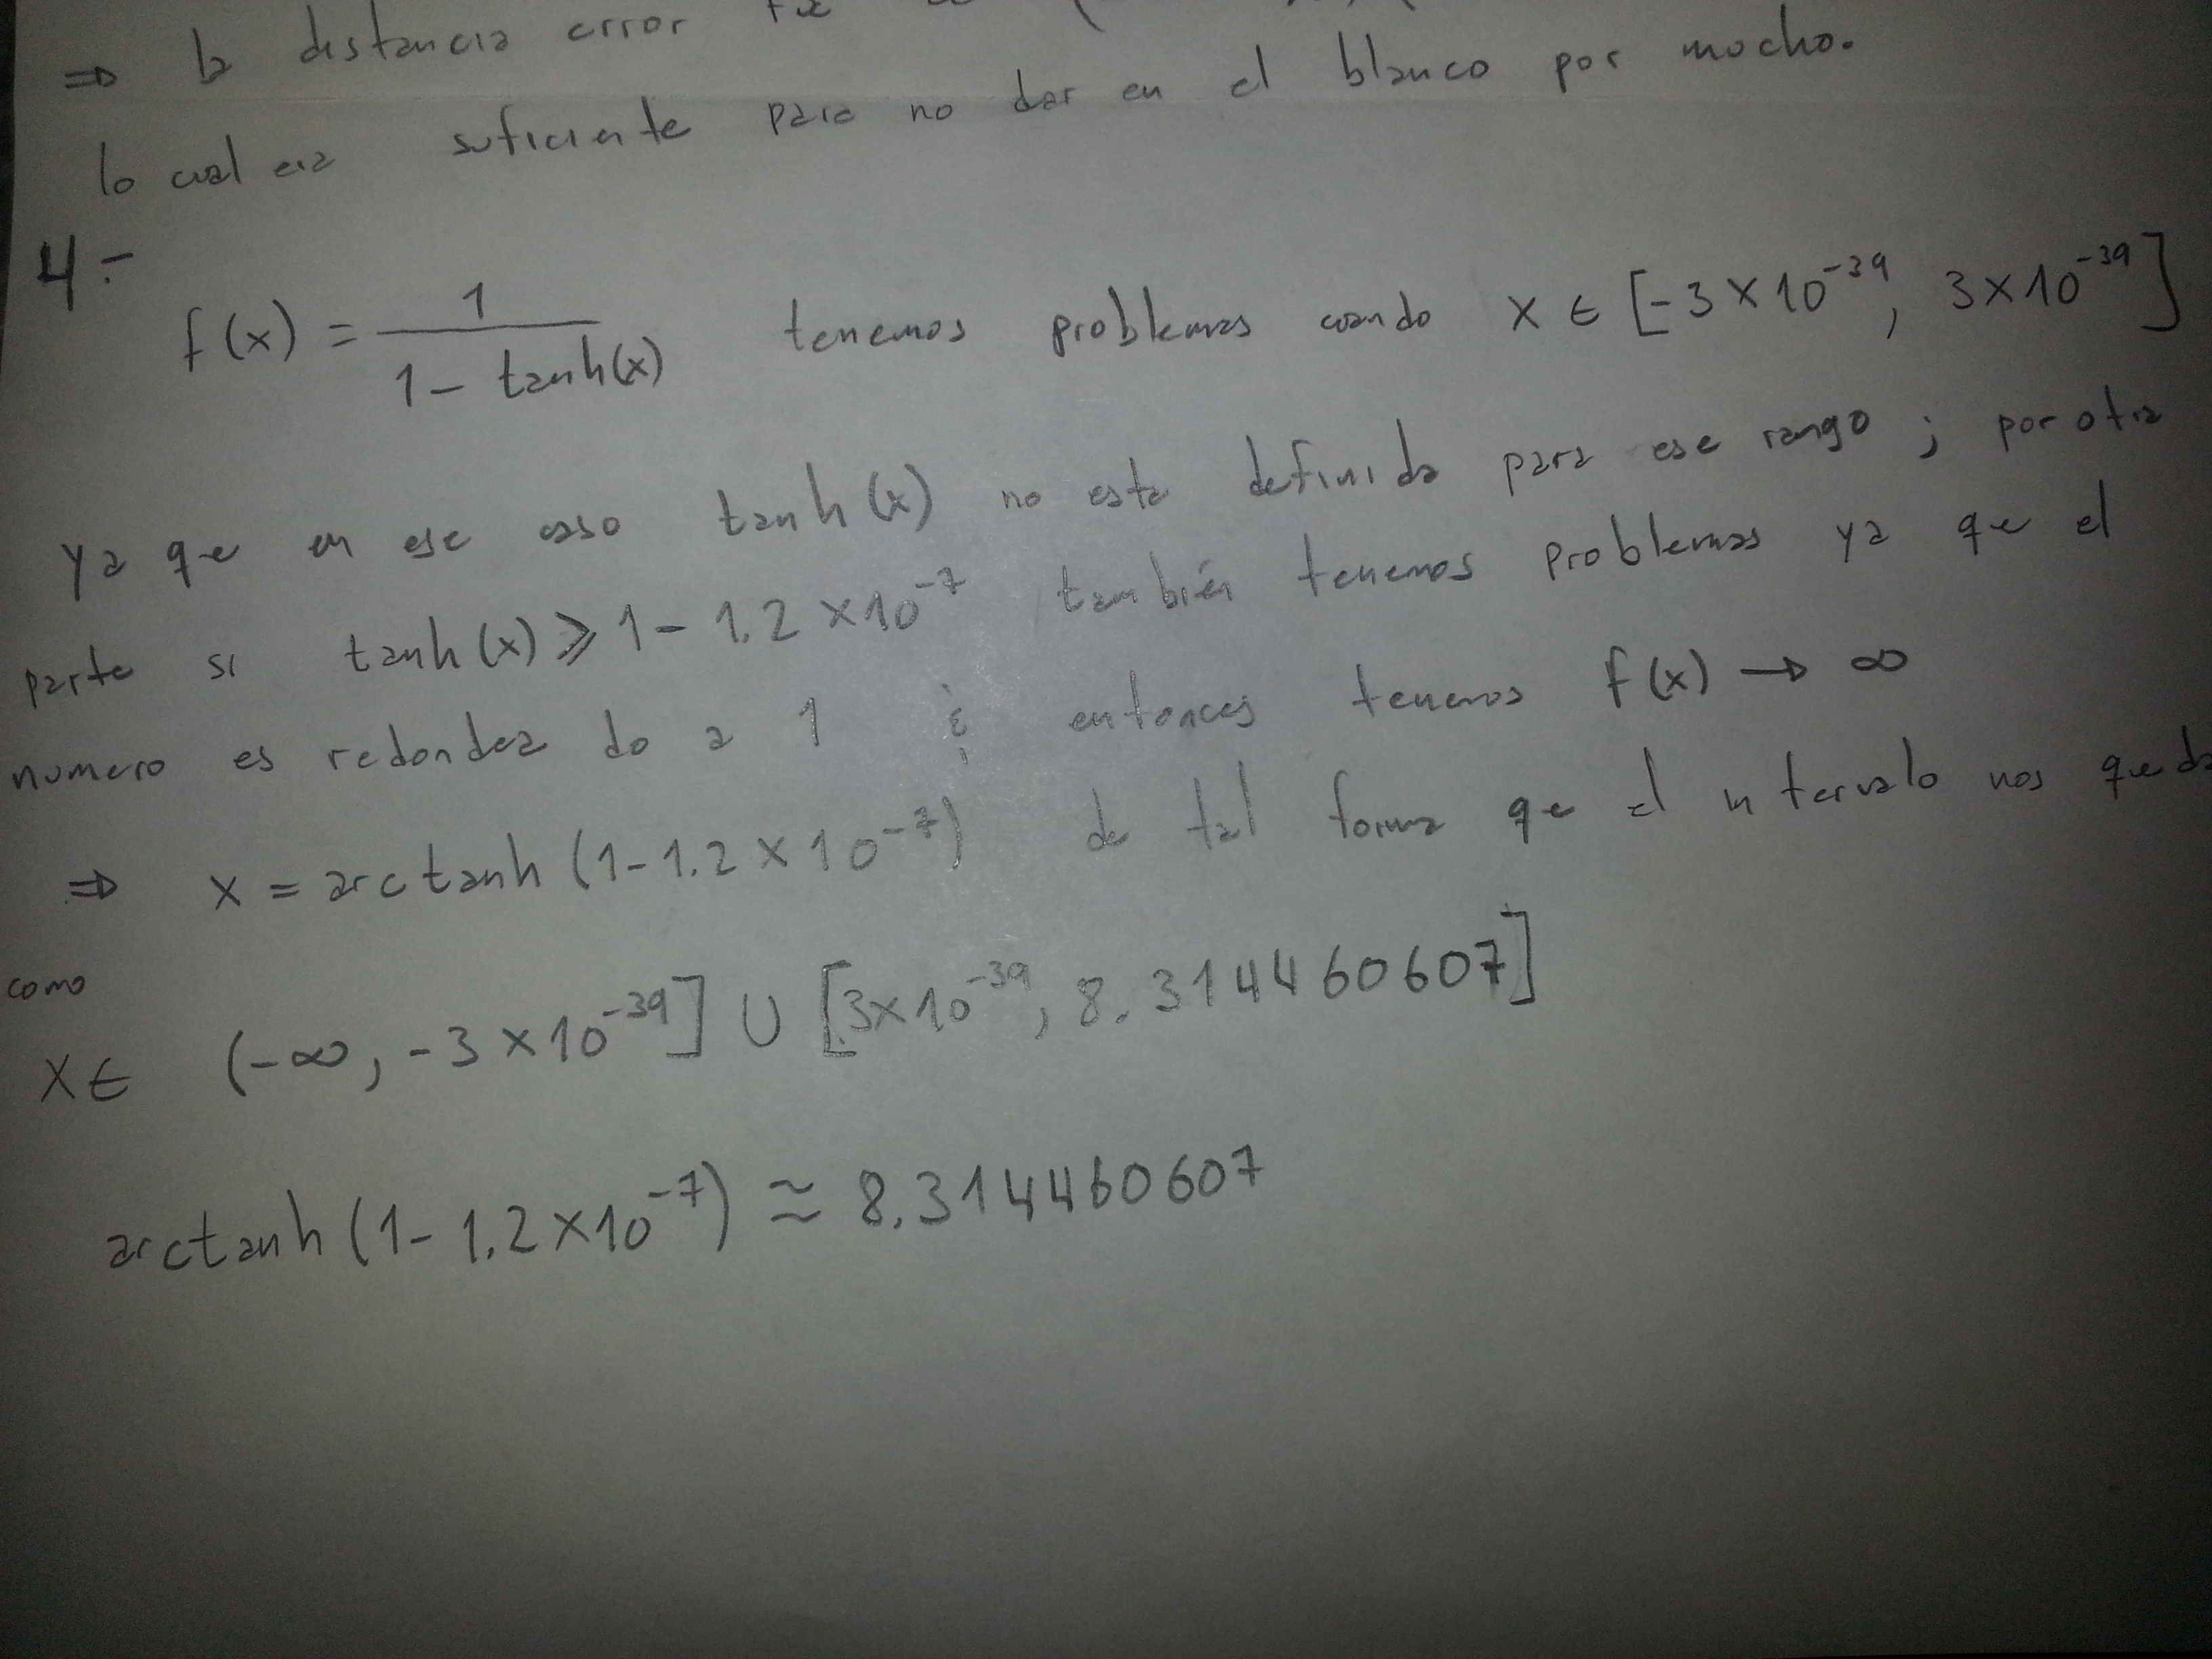 ⇒ la distancia error
lo cual era suficiente para no dar en el blanco por mucho.
4.-
f(x) = 1 / (1 - tanh(x)) tenemos problemas cuando x ∈ [-3 × 10^-39, 3 × 10^-39]
ya que en ese caso tanh(x) no esta definida para ese rango ; por otra
parte si tanh(x) ⩾ 1 - 1.2 × 10^-7 también tenemos problemas ya que el
numero es redondeado a 1 & entonces tenemos f(x) → ∞
⇒ x = arctanh (1 - 1.2 × 10^-7) de tal forma que el intervalo nos queda
como
x ∈ (-∞, -3 × 10^-39] ∪ [3 × 10^-39, 8.314460607]
arctanh (1 - 1.2 × 10^-7) ≈ 8.314460607